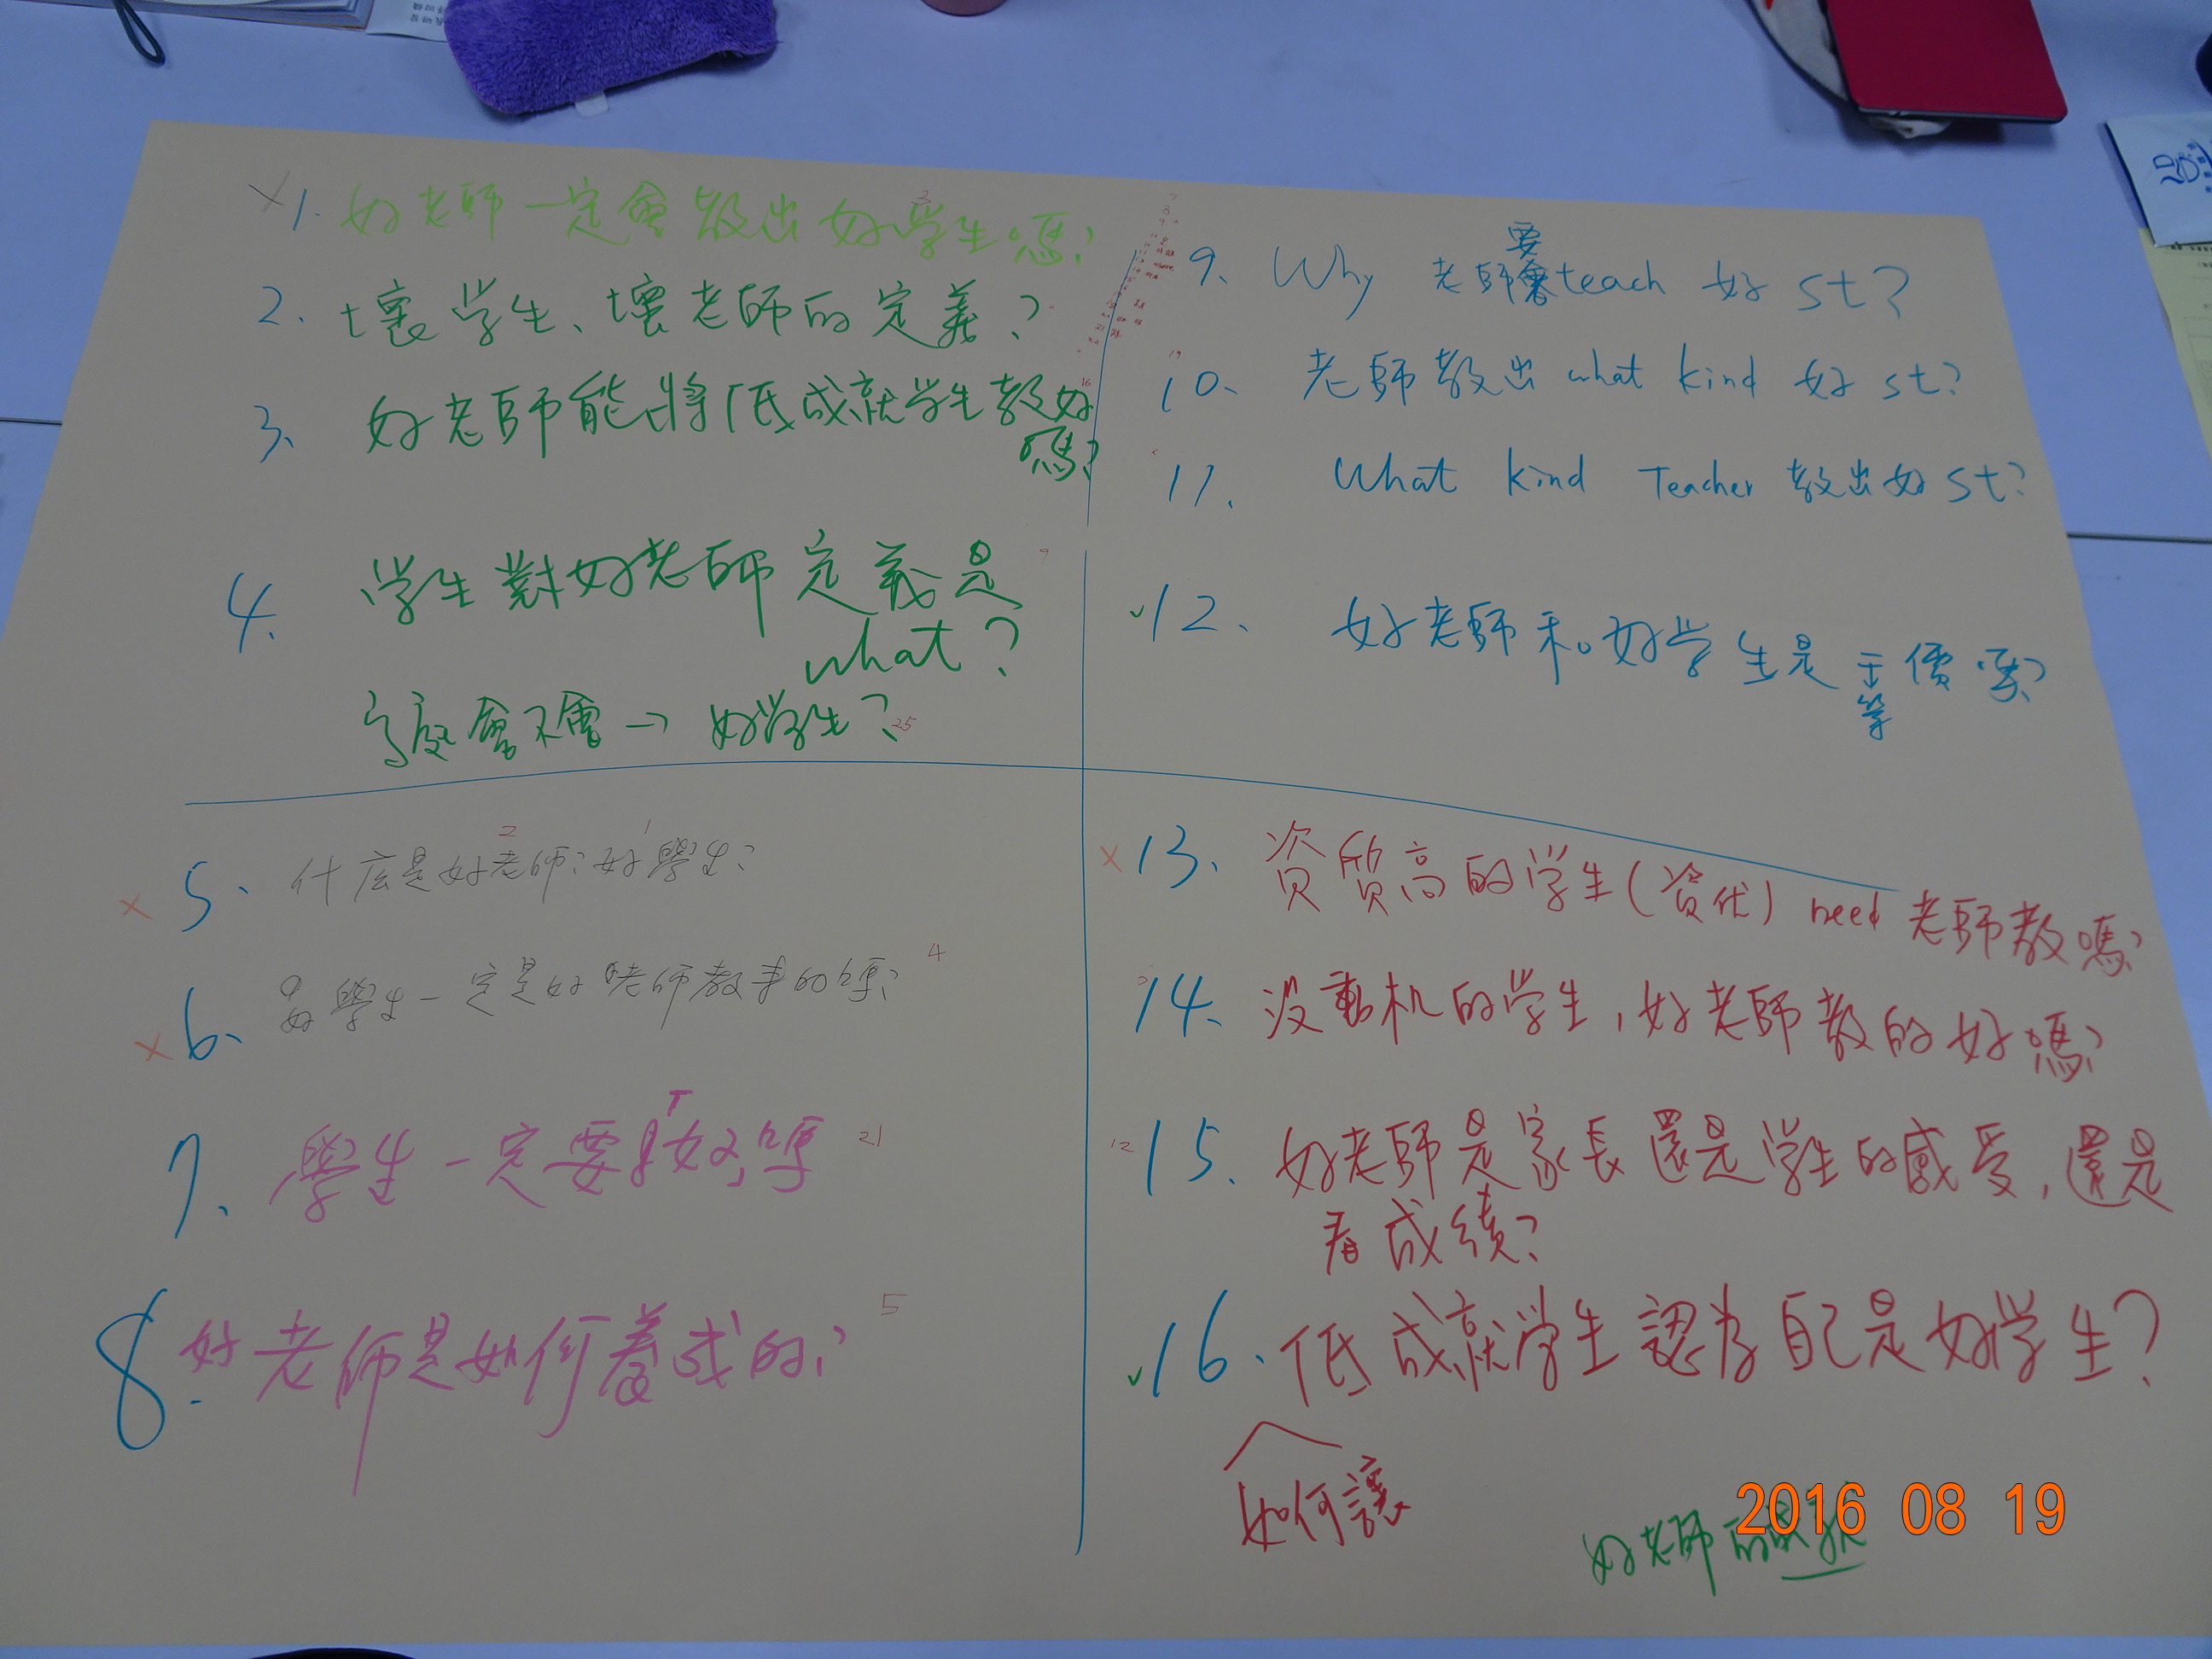 1. 好老師一定會教出好學生嗎?
2. 壞学生、壞老師的定義?
3、好老師能將低成就学生教好
嗎?
4. 学生對好老師定義是
what?
會不會→好学生? 25
5、什庅是好老師?好學生?
2 1
6、好學生一定是好老師教出來的嗎? 4
7、學生一定要好嗎 21
8. 好老師是如何養成的? 5
要
9、Why 老師會teach 好 st?
10、老師教出 what kind 好 st?
11. What kind Teacher 教出好 st?
✓12、好老師和好学生是 價嗎?
等
×13、資質高的学生(資优) need 老師教嗎?
14、沒動机的学生,好老師教的好嗎?
12 15. 好老師是家長還是学生的感受,還是
看成績?
✓16、低成就学生認為自己是好学生?
如何讓
好老師的
2016 08 19